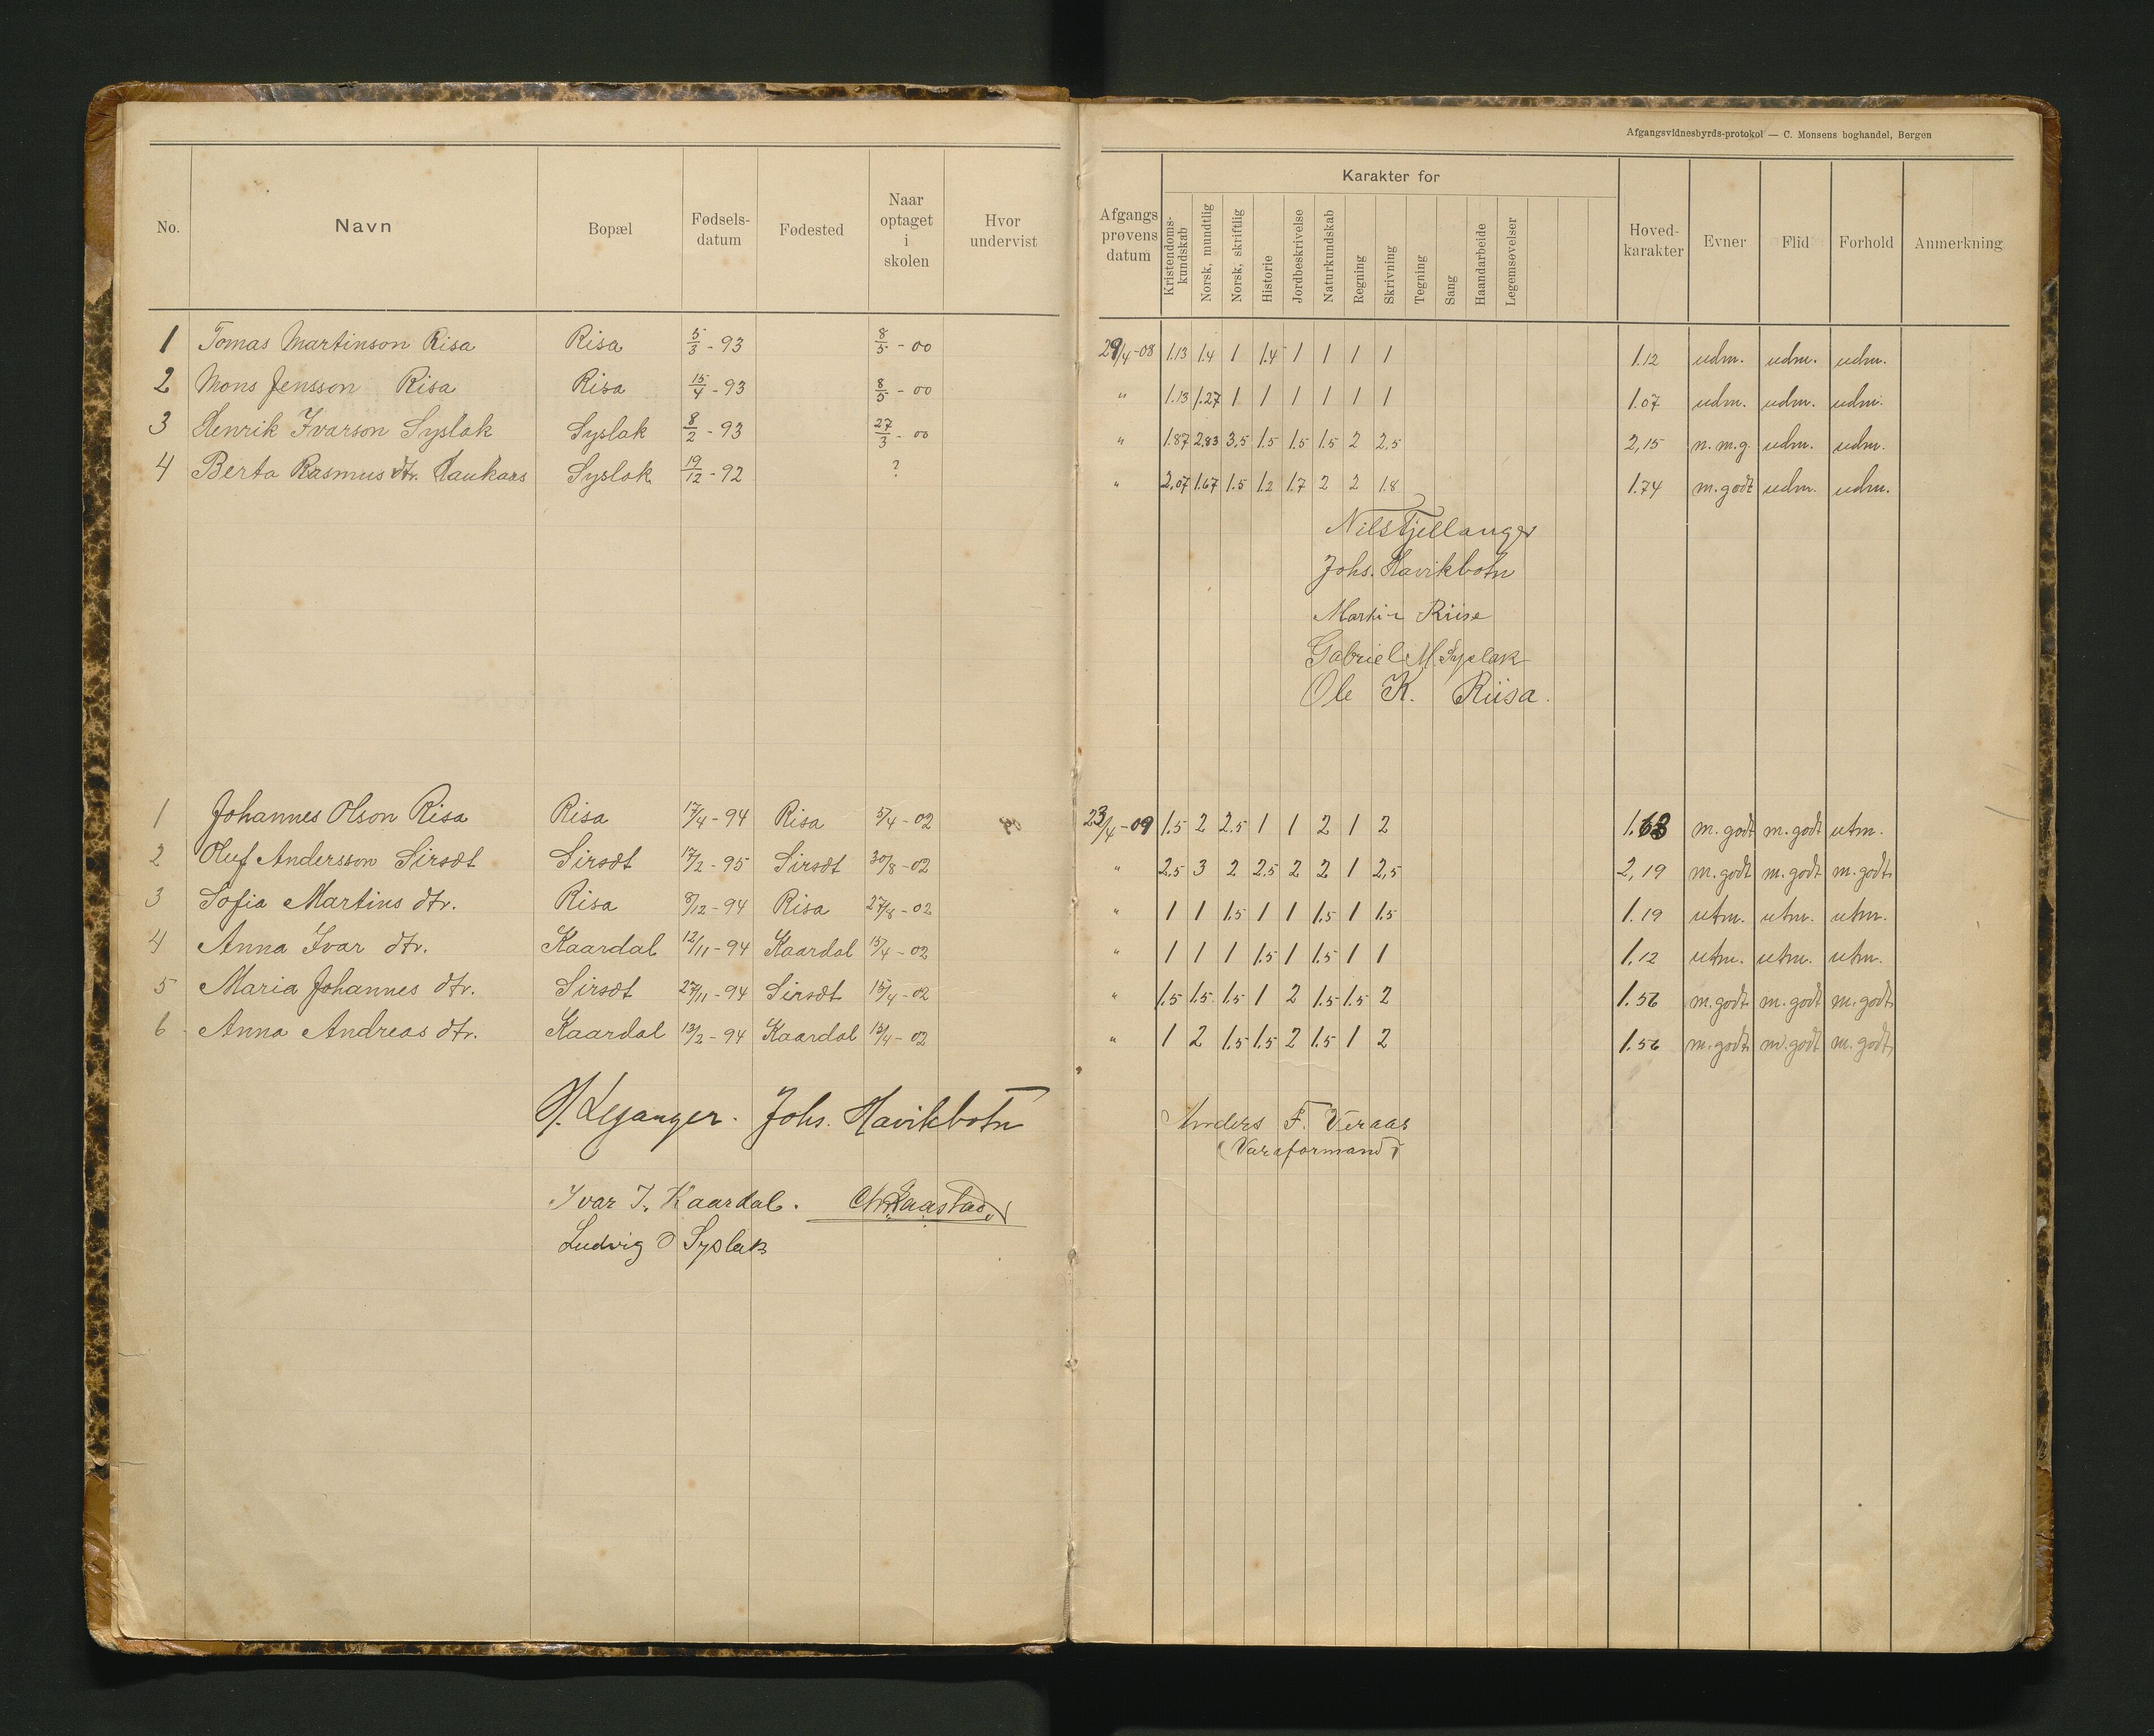 Afgangsvidnesbyrds-protokol — C. Monsens boghandel, Bergen
No. Navn Bopæl Fødsels-datum Fødested Naar optaget i skolen Hvor undervist Afgangsprøvens datum Karakter for Hoved-karakter Evner Flid Forhold Anmerkning
Kristendoms-kundskab Norsk, mundtlig Norsk, skriftlig Historie Jordbeskrivelse Naturkundskab Regning Skrivning Tegning Sang Haandarbeide Legemsøvelser
1 Tomas Martinson Risa Risa 5/3 - 93 8/5 - 00 29/4-08 1.13 1.4 1 1.4 1 1 1 1 1.12 udm. udm. udm.
2 Mons Jensson Risa Risa 15/4 - 93 8/5 - 00 " 1.13 1.27 1 1 1 1 1 1 1.07 udm. udm. udm.
3 Henrik Ivarson Syslak Syslak 8/2 - 93 27/3 - 00 " 1.87 2,83 3,5 1.5 1.5 1.5 2 2,5 2,15 n. m. g. udm. udm.
4 Berta Rasmus dtr. Haukaas Syslak 19/12 - 92 ? " 2,07 1.67 1.5 1.2 1.7 2 2 1.8 1.74 m. godt udm. udm.
Nils Tjellanger
Johs. Havikbotn
Martin Riise
Gabriel M. Syslak
Ole K. Riisa.
1 Johannes Olson Risa Risa 17/4 - 94 Risa 5/4 - 02 23/4-09 1.5 2 2.5 1 1 2 1 2 1.63 m. godt m. godt utm.
2 Oluf Andersson Sirsdt Sirsdt 17/2 - 95 Sirsdt 30/8 - 02 " 2.5 3 2 2.5 2 2 1 2,5 2,19 m. godt m. godt m. godt.
3 Sofia Martins dtr. Risa 8/12 - 94 Risa 27/8 - 02 " 1 1 1.5 1 1 1.5 1 1.5 1.19 utm. utm. utm.
4 Anna Ivar dtr. Kaardal 12/11 - 94 Kaardal 15/4 - 02 " 1 1 1 1.5 1 1.5 1 1 1.12 utm. utm. utm.
5 Maria Johannes dtr. Sirsdt 27/11 - 94 Sirsdt 15/4 - 02 " 1.5 1.5 1.5 1 2 1.5 1.5 2 1.56 m. godt. m. godt m. godt.
6 Anna Andreas dtr. Kaardal 13/2 - 94 Kaardal 15/4 - 02 " 1 2 1.5 1.5 2 1.5 1 2 1.56 m. godt. m. godt m. godt.
N. Leganger. Johs. Havikbotn Anders F. Veraas
(Varaformand)
Ivar I. Kaardal.
Ludvig O Syslak